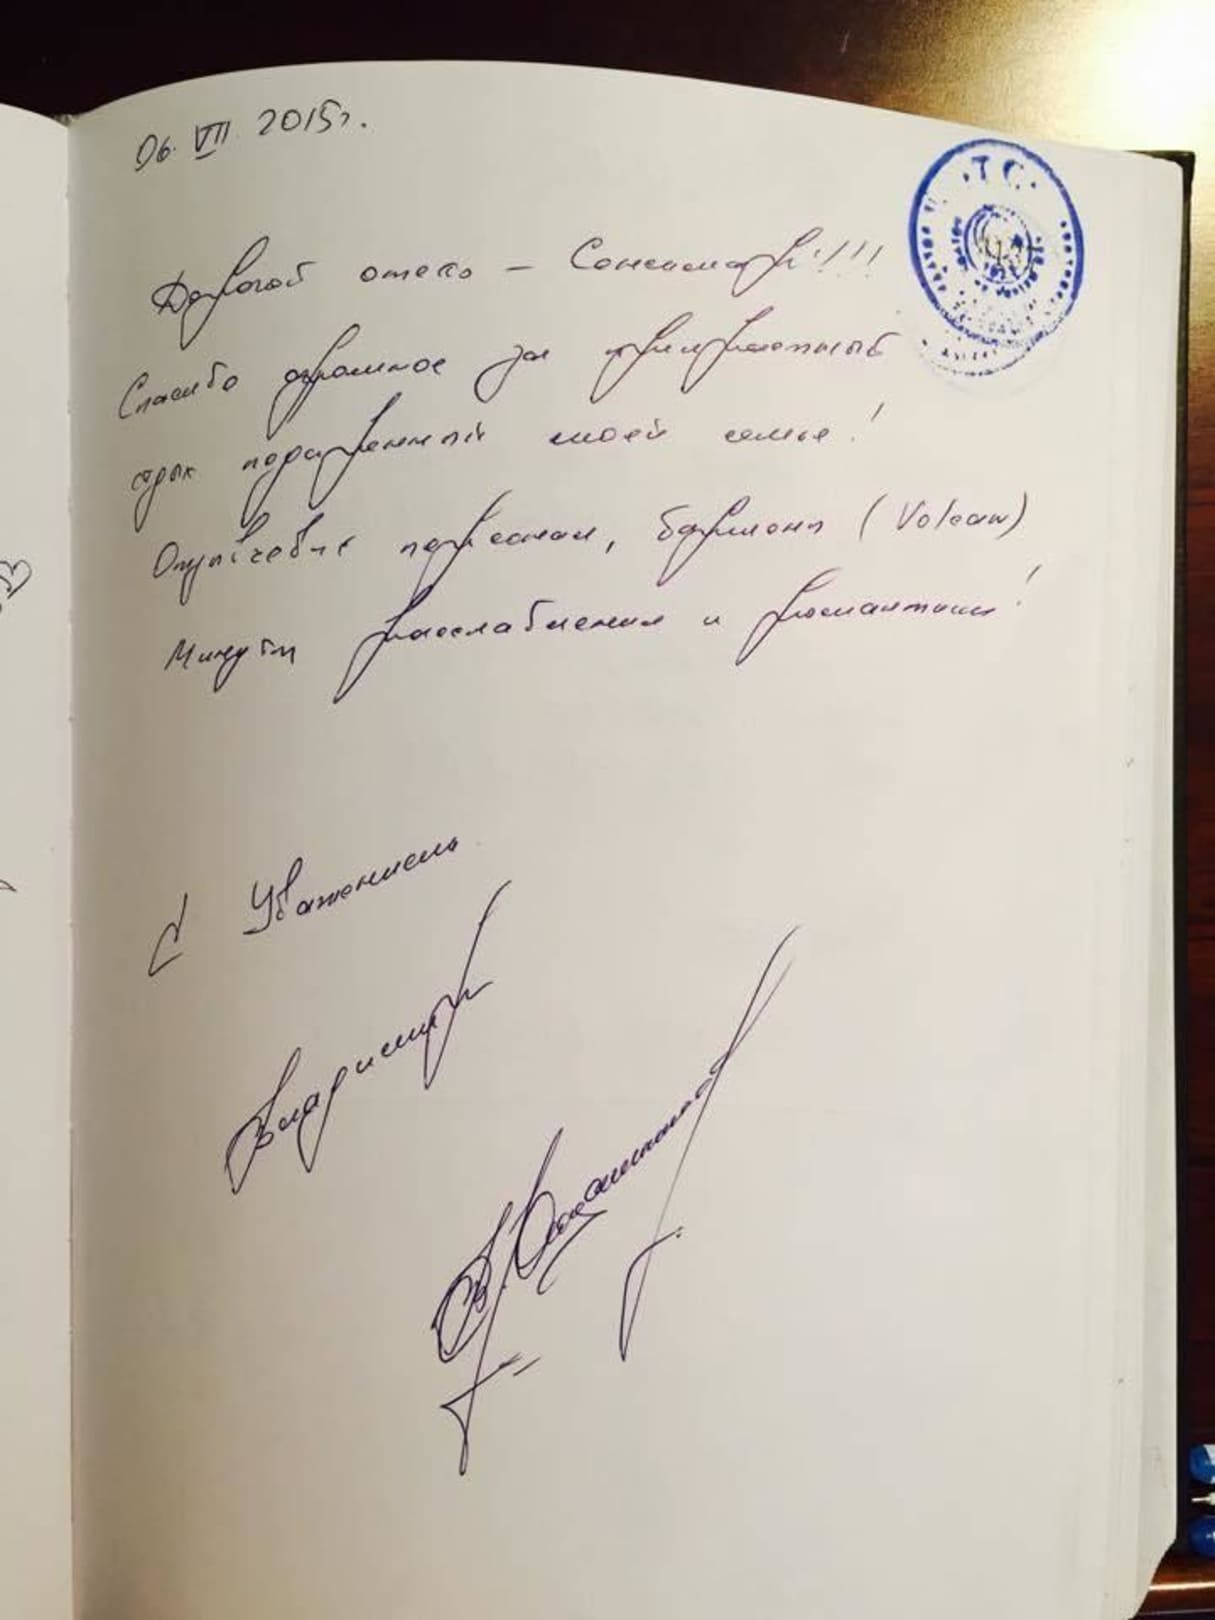 06. VII. 2015г.
Дорогой отель – Сенсимар!!!!
Спасибо огромное за приятный
отдых подаренный моей семье!
Отзывчивые персонал, бармены (Volcan)
Минуты расслабления и романтики!
С Уважением
Владимир